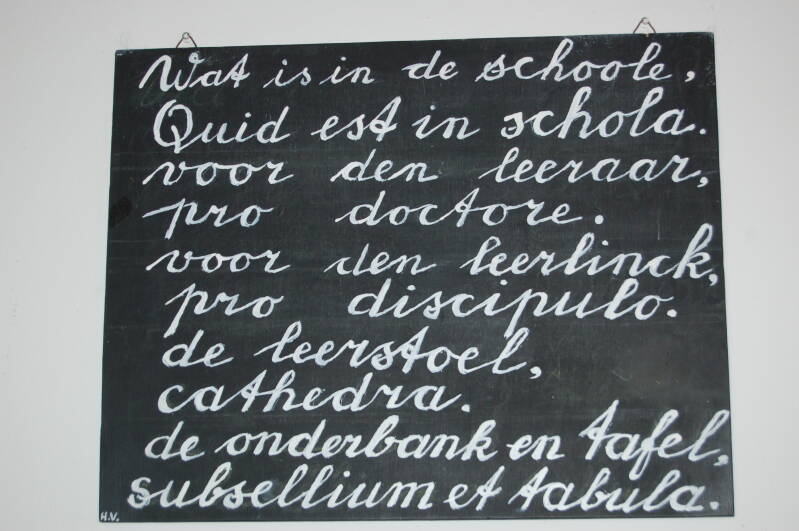 Wat is in de schoole,
Quid est in schola.
voor den leeraar,
pro doctore.
voor den leerlinck,
pro discipulo.
de leerstoel,
cathedra.
de onderbank en tafel,
subsellium et tabula.
H.V.